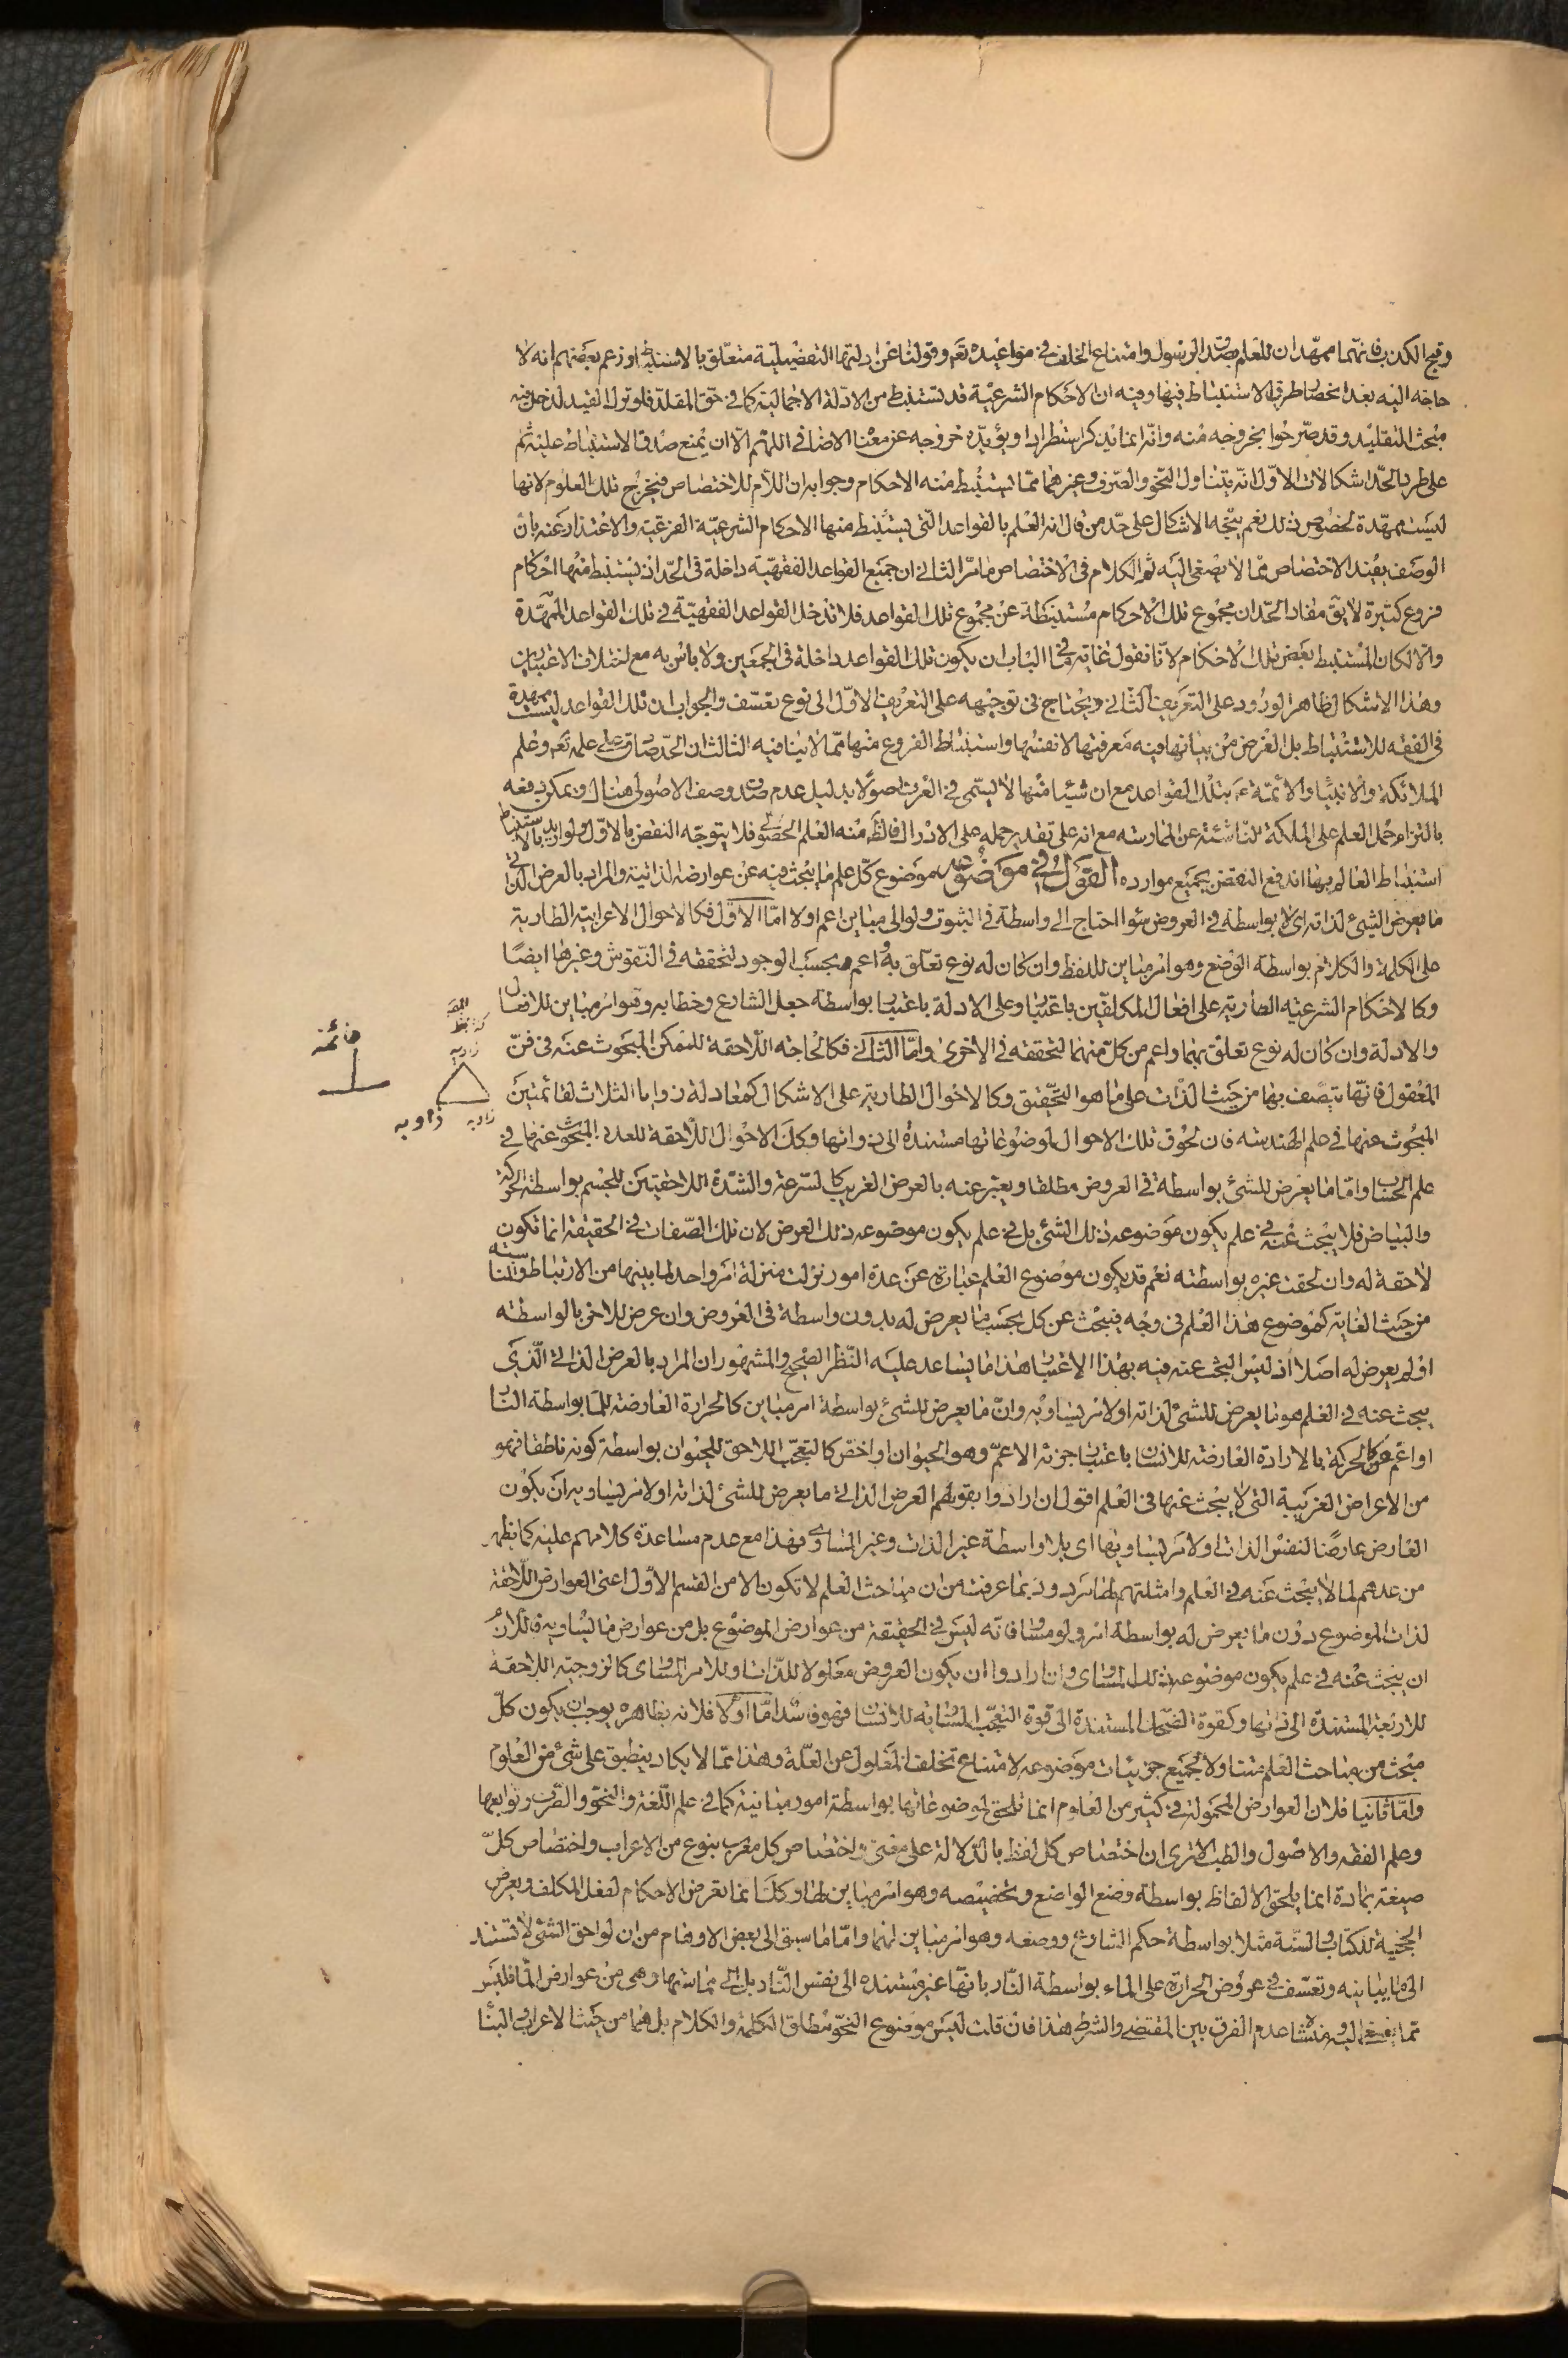 وقبح الكذب فانهما ممهّدان للعلم بصدق الرسول وامتناع الخلف في مواعيده تعم وقولنا عن ادلتها التفصيلية متعلّق بالاستنباط او زعم بعضهم انه لا
حاجة اليه بعد اختصاص طرق الاستنباط فيها وفيه ان الاحكام الشرعيّة قد تستنبط من الادلّة الاجمالية كما في حقّ المقلّد فلو ترك القيد لدخل فيه
مبحث التقليد وقد صرّحوا بخروجه منه وانّه انما يذكر استطرادا ويؤيّده خروجه عن معنا الاضافي اللّهم الّا ان يمنع صدق الاستنباط عليه ثم
على طرد الحدّ اشكالات الاوّل انّه يتناول النحّو والصّرف وغيرهما ممّا يستنبط منه الاحكام وجوابه ان اللّام للاختصاص فيخرج تلك العلوم لانها
ليست ممهّدة لخصوص ذلك نعم يتّجه الاشكال على حدّ من قال انه العلم بالقواعد الّتي يستنبط منها الاحكام الشرعيّة الفرعيّة والاعتذار عنه بان
الوصف يفيد الاختصاص ممّا لا يصغى اليه ثم الكلام في الاختصاص ما مرّ الثاني ان جميع القواعد الفقهيّة داخلة في الحّد اذ يستنبط منها احكام
فروع كثيرة لا يق مفاد الحّد ان مجموع تلك الاحكام مستنبطة عن مجموع تلك القواعد فلا تدخل القواعد الفقهيّة في تلك القواعد الممهّدة
والا لكان المستنبط بعض تلك الاحكام لانّا نقول غاية ما في الباب ان يكون تلك القواعد داخلة في الجمعين ولا باس به مع اختلاف الاعتبارين
وهذا الاشكال ظاهر الورود على التعريف الثّاني ويحتاج في توجيهه على التعريف الاوّل الى نوع تعسّف والجواب ان تلك القواعد ليست ممهدة
في الفقه للاستنباط بل الغرض من بيانها فيه معرفتها لانفسها واستنباط الفروع منها ممّا لا ينافيه الثالث ان الحّد صادق على علمه تعم وعلم
الملائكة والانبياء والائمّة ع بتلك القواعد مع ان شيئا منها لا يسّمى في العرف اصولا بدليل عدم صدق وصف الاصولي هناك ويمكن دفعه
بالتزام حمل العلم على الملكة النّاشئة عن الممارسة مع انه على تقدير حمله على الادراك فالظّ منه العلم الحصولي فلا يتوجّه النقض بالاوّل ولو اريد بالاستنباط
استنباط العالم بها اندفع النقض بجميع موارده القول في موضوعه موضوع كلّ علم ما يبحث فيه عن عوارضه الذاتية والمراد بالعرض الذاتي
ما يعرض الشيئ لذاته اي لا بواسطة في العروض سواء احتاج الى واسطة في الثبوت ولو الى مباين اعم اولا امّا الاوّل فكالاحوال الاعرابية الطارية
على الكلمة والكلام بواسطة الوضع وهو امر مباين للفظ وان كان له نوع تعلّق به واعم بحسب الوجود لتحققه في النّقوش وغيرها ايضًا
وكالاحكام الشرعيّة الطارية على افعال المكلفّين باعتبار وعلى الادلة باعتبار بواسطة جعل الشارع وخطابه وهو امر مباين للافعال
والادلة وان كان له نوع تعلّق بهما واعم من كلّ منهما لتحققه في الاخرى وامّا الثاني فكالحاجة اللّاحقة للممكن المبحوث عنه في فنّ
المعقول فانّها يتصّف بها من حيث الذّات على ما هو التّحقيق وكالاحوال الطارية على الاشكال كمعادلة زوايا الثلاث لقائمتين
المبحوث عنها في علم الهندسة فان لحوق تلك الاحوال لموضوعاتها مستندة الى ذواتها وكك الاحوال اللّاحقة للعدد المبحوث عنها في
علم الحساب وامّا ما يعرض للشئ بواسطة في العروض مطلقا ويعبّر عنه بالعرض الغريب كالسّرعة والشّدة اللاحقتين للجسم بواسطة الحركة
والبياض فلا يبحث عنه في علم يكون موضوعه ذلك الشّئ بل في علم يكون موضوعه ذلك العرض لان تلك الصّفات في الحقيقة انما تكون
لاحقة له وان لحقت غيره بواسطته نعم قد يكون موضوع العلم عبارة عن عدة امور نزلت منزلة امر واحد لما بينها من الارتباط والمناسبة
من حيث الغاية كموضوع هذا العلم في وجه فيبحث عن كل بحسب ما يعرض له بدون واسطة في العروض وان عرض للاخر بالواسطة
او لم يعرض له اصلا اذ ليس البحث عنه فيه بهذا الاعتبار هذا ما يساعد عليه النّظر الصّحيح والمشهور ان المراد بالعرض الذاتي الّذي
يبحث عنه في العلم هو ما يعرض للشئ لذاته او لامر يساويه وانّ ما يعرض للشئ بواسطة امر مباين كالحرارة العارضة للماء بواسطة النار
او اعّم كالحركة بالارادة العارضة للانسان باعتبار جزئه الاعمّ وهو الحيوان او اخصّ كالتعجّب اللاحق للحيوان بواسطة كونه ناطقا فهو
من الاعراض الغريبة التي لا يبحث عنها في العلم اقول ان ارادوا بقولهم العرض الذاتي ما يعرض للشئ لذاته او لامر يساويه ان يكون
العارض عارضًا لنفس الذات او لامر يساويها اي بلا واسطة غير الذات وغير المساوي فهذا مع عدم مساعدة كلامهم عليه كما يظهر
من عدهم لما لا يبحث عنه في العلم وامثلتهم لها مردود بما عرفت من ان مباحث العلم لا تكون الا من القسم الاوّل اعني العوارض اللّاحقة
لذات الموضوع دون ما يعرض له بواسطة امر ولو مساو فانّه ليس في الحقيقة من عوارض الموضوع بل من عوارض ما يساويه فاللّازم
ان يبحث عنه في علم يكون موضوعه ذلك المساوي وان ارادوا ان يكون العروض معلولا للذّات او للامر المساوي كالزوجية اللاحقة
للاربعة المستندة الى ذاتها وكقوة الضّحك المستندة الى قوة التعجّب المساوية للانسان فهو فاسد امّا اوّلا فلانه بظاهره يوجب ان يكون كلّ
مبحث من مباحث العلم متناولا لجميع جزئيات موضوعه لامتناع تخلف المعلول عن العلّة وهذا ممّا لا يكاد ينطبق على شئ من العلوم
وامّا ثانيا فلان العوارض المحمولة في كثير من العلوم انما تلحق لموضوعاتها بواسطة امور مباينة كما في علم اللّغة والنحّو والصّرف وتوابعها
وعلم الفقه والاصول والطب الا ترى ان اختصاص كل لفظ بالدّلالة على معنى واختصاص كل معرب بنوع من الاعراب واختصاص كلّ
صيغة بمادة انما يلحق الالفاظ بواسطة وضع الواضع وتخصيصه وهو امر مباين لها وكك انما تعرض الاحكام لفعل المكلف ويعرض
الحجّية للكتاب والسّنة مثلا بواسطة حكم الشارع ووضعه وهو امر مباين لهما وامّا ما سبق الى بعض الاوهام من ان لواحق الشّئ لا تستند
الى ما يباينه وتعسّف في عروض الحرارة على الماء بواسطة النّار بانّها غير مستندة الى نفس النّار بل الى مماسّتها وهي من عوارض الماء فليس
ممّا يصغى اليه ومنشاؤه عدم الفرق بين المقتضي والشرط هذا فان قلت ليس موضوع النحّو مطلق الكلمة والكلام بل هما من حيث الاعراب والبناء
قائمة
زاويه
زاويه
زاويه